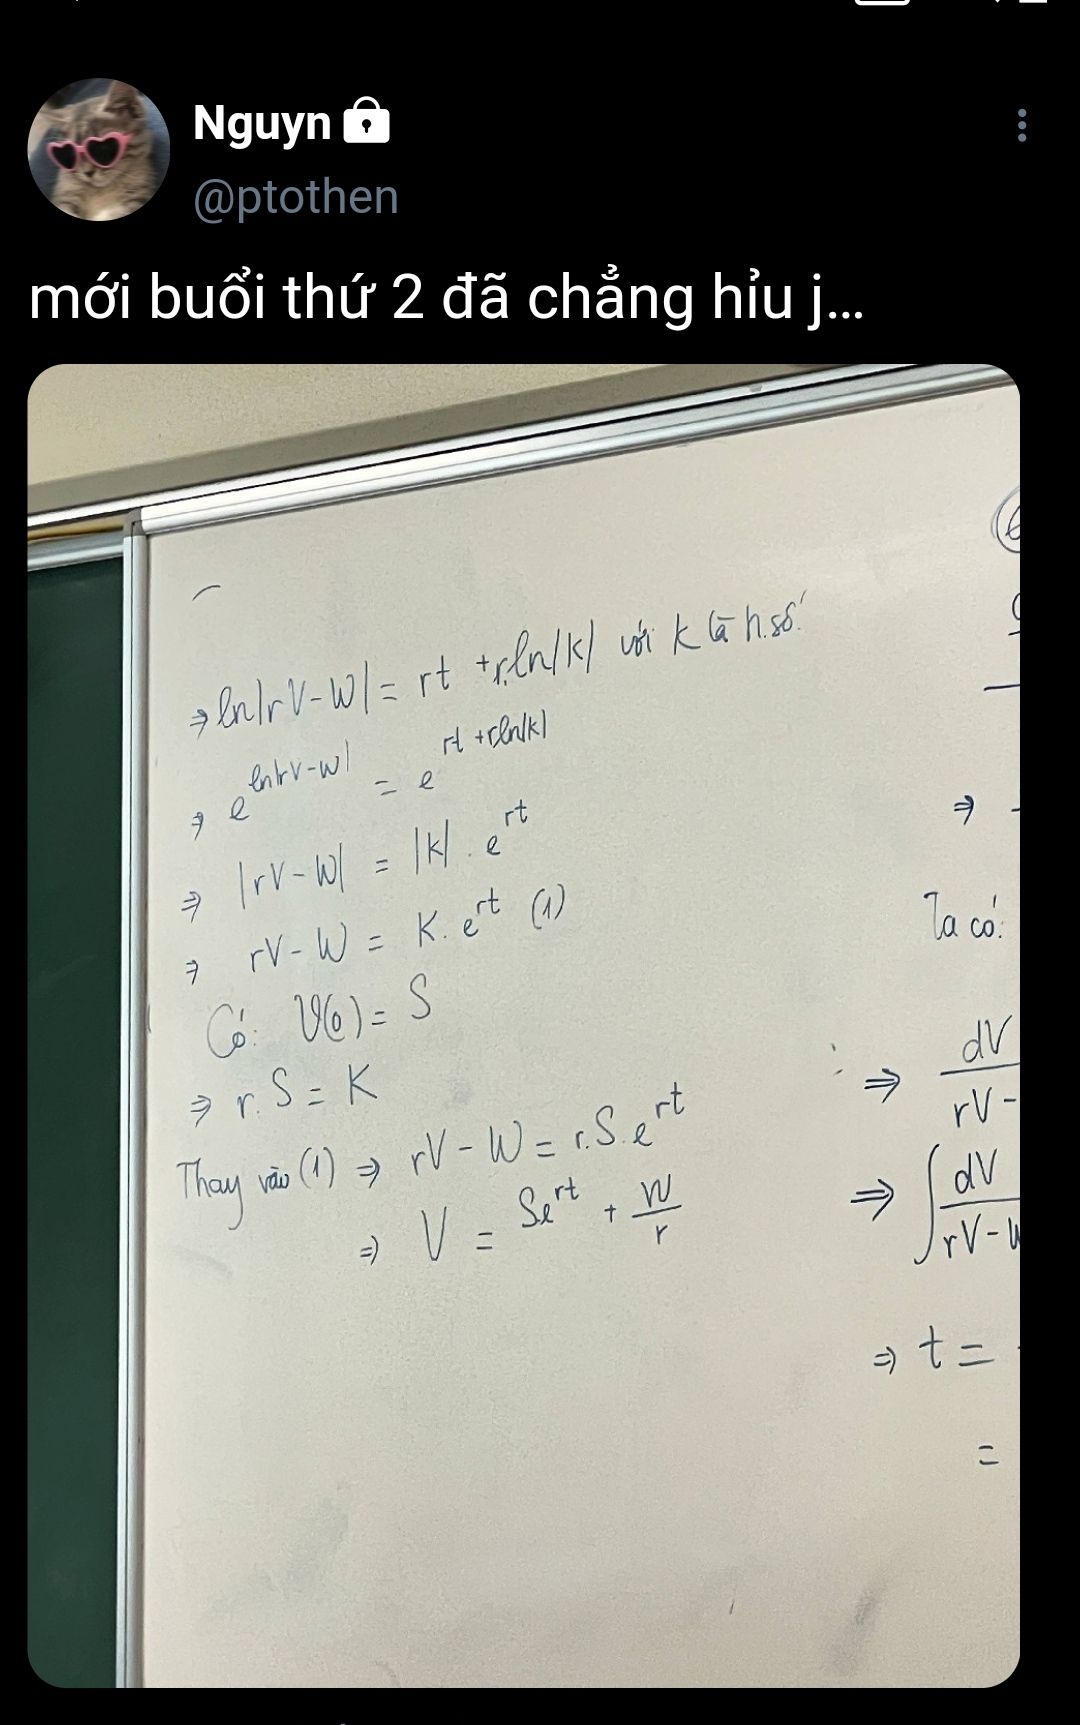 Nguyn
@ptothen
mới buổi thứ 2 đã chẳng hỉu j...
⇒ ln|rV-W| = rt + r.ln|k| với k là h.số
⇒ e^{ln|rV-W|} = e^{rt + rln|k|}
⇒ |rV-W| = |k| . e^{rt}
⇒ rV-W = K. e^{rt} (1)
Có: V(0) = S
⇒ r.S = K
Thay vào (1) ⇒ rV-W = r.S.e^{rt}
⇒ V = Se^{rt} + W/r
⇒
Ta có:
⇒ dV / rV-
⇒ ∫ dV / rV-W
⇒ t =
=